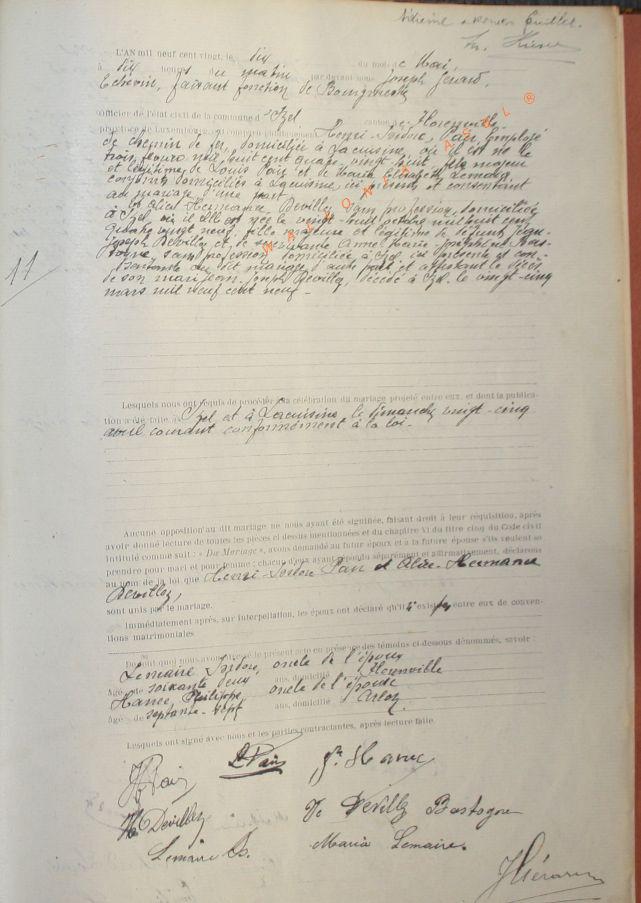 L'AN mil neuf cent vingt, le dix du mois de Mai,
à dix heures du matin par devant nous Joseph Gérard,
Echevin, faisant fonction de Bourgmestre
officier de l'état civil de la commune d'Izel canton de Florenville
province de Luxembourg, ont comparu publiquement Henri-Isidore Pair, Employé
de chemin de fer, domicilié à Lacuisine, où il est né le
trois février mil huit cent quatre-vingt huit, fils majeur
et légitime de Louis Pair et de Maria Elisabeth Lemaire,
conjoints domiciliés à Lacuisine, ici présents et consentant
au mariage, d'une part
Et Alice Hermance Devillez, sans profession, domiciliée
à Izel, où elle est née le vingt-huit octobre mil huit cent
quatre vingt neuf, fille majeure et légitime de défunt Jean-
Joseph Devillez et de survivante Anne Marie Joséphine Bas-
togne, sans profession, domiciliée à Izel, ici présente et con-
sentante au dit mariage, d'autre part, et attestant le décès
de son mari Jean-Joseph Devillez, décédé à Izel, le vingt-cinq
mars mil neuf cent neuf.-
11
WALLONIA ASBL ®
Lesquels nous ont requis de procéder à la célébration du mariage projeté entre eux, et dont la publica-
tion a été faite à Izel et à Lacuisine, le dimanche vingt-cinq
avril courant conformément à la loi.-
Aucune opposition au dit mariage ne nous ayant été signifiée, faisant droit à leur réquisition, après
avoir donné lecture de toutes les pièces ci dessus mentionnées et du chapitre VI du titre cinq du Code civil
intitulé comme suit : « Du Mariage », avons demandé au futur époux et à la future épouse s'ils veulent se
prendre pour mari et pour femme ; chacun d'eux ayant répondu séparément et affirmativement, déclarons
au nom de la loi que Henri-Isidore Pair et Alice-Hermance
Devillez,
sont unis par le mariage.
Immédiatement après, sur interpellation, les époux ont déclaré qu'il n'existe pas entre eux de conven-
tions matrimoniales
De tout quoi nous avons dressé le présent acte en présence des témoins ci-dessous dénommés, savoir :
Lemaire Isidore, oncle de l'époux
âgé de soixante deux ans, domicilié à Florenville
Hanse Philippe, oncle de l'épouse
âgé de septante-sept ans, domicilié à Arlon.
Lesquels ont signé avec nous et les parties contractantes, après lecture faite.
H Pair L. Pair Ph. Hanse
Devillez Ve Devillez Bastogne
Lemaire Is. Maria Lemaire.
J Gérard